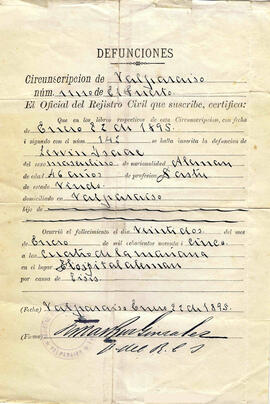 DEFUNCIONES
Circunscripcion de Valparaiso
núm. uno de El Puerto
El Oficial del Rejistro Civil que suscribe, certifica:
Que en los libros respectivos de esta Circunscripcion, con fecha
de Enero 22 de 1895.
i signado con el núm. 142 se halla inscrita la defuncion de
Isaac
del sexo masculino de nacionalidad Aleman
de edad 46 años de profesion Sastre
de estado Viudo
domiciliado en Valparaiso
hijo de
Ocurrió el fallecimiento el dia veintidos del mes
de Enero de mil ochocientos noventa i cinco
a las cuatro de la mañana
en el lugar Hospital aleman
por causa de Tisis.
(Fecha) Valparaiso Enero 22 de 1895.
(Firma) Gonzalez